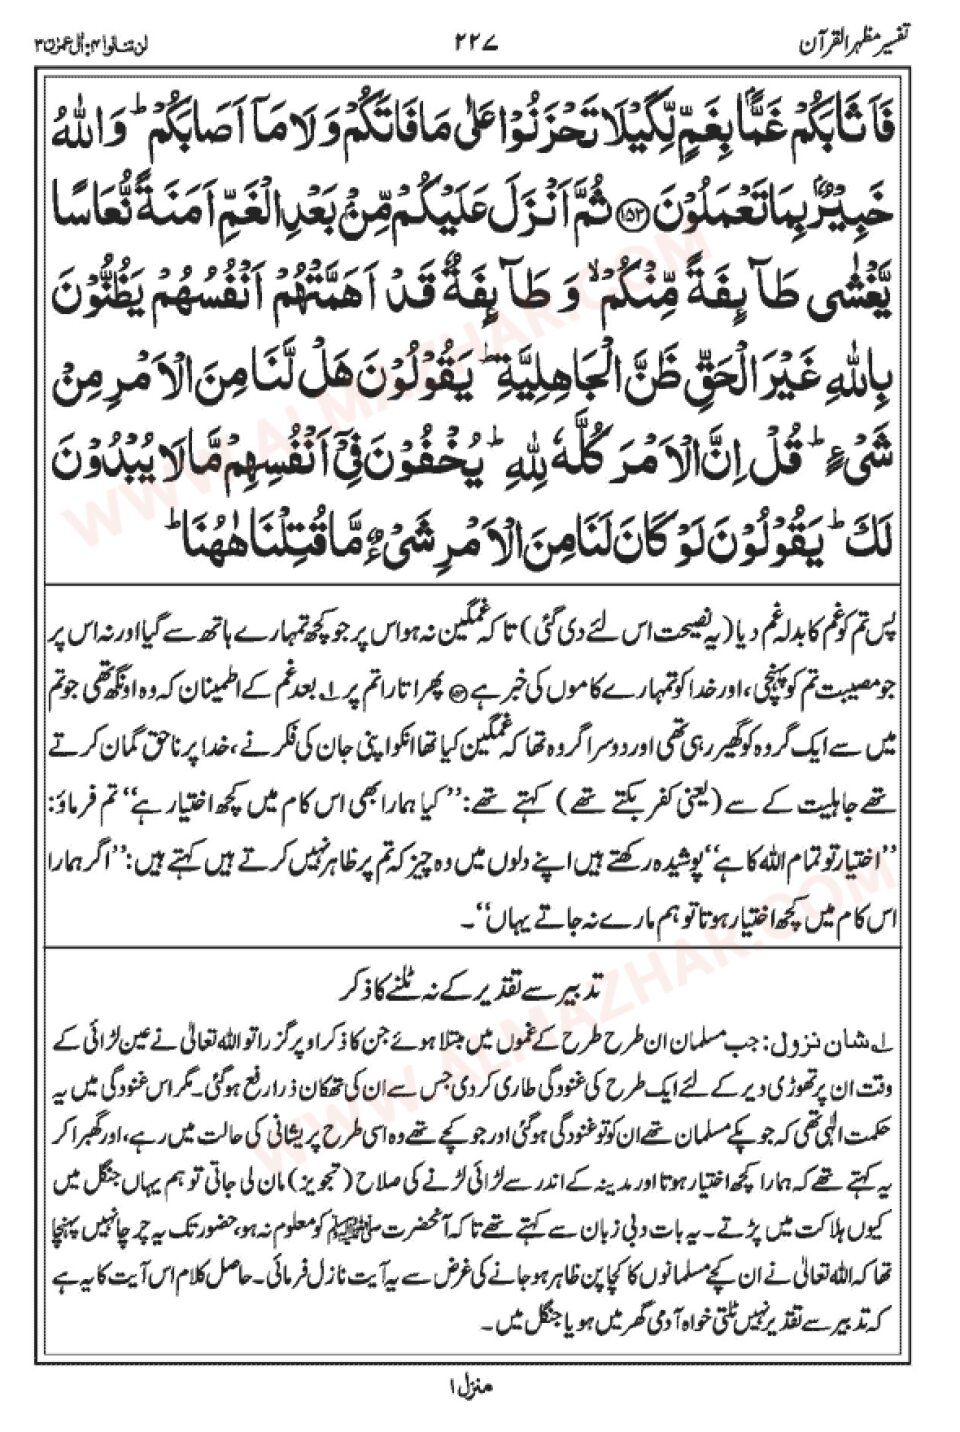 تفسیر مظہر القرآن ۲۲۷ لن تنالوا ۴: اٰل عمرٰن ۳
فَاَثَابَكُمْ غَمًّۢا بِغَمٍّ لِّكَيْلَا تَحْزَنُوْا عَلٰى مَا فَاتَكُمْ وَلَا مَاۤ اَصَابَكُمْ ؕ وَاللّٰهُ
خَبِيْرٌۢ بِمَا تَعْمَلُوْنَ ﴿۱۵۳﴾ ثُمَّ اَنْزَلَ عَلَيْكُمْ مِّنْۢ بَعْدِ الْغَمِّ اَمَنَةً نُّعَاسًا
يَّغْشٰى طَآئِفَةً مِّنْكُمْ ۙ وَطَآئِفَةٌ قَدْ اَهَمَّتْهُمْ اَنْفُسُهُمْ يَظُنُّوْنَ
بِاللّٰهِ غَيْرَ الْحَقِّ ظَنَّ الْجَاهِلِيَّةِ ؕ يَقُوْلُوْنَ هَلْ لَّنَا مِنَ الْاَمْرِ مِنْ
شَیْءٍ ؕ قُلْ اِنَّ الْاَمْرَ كُلَّهٗ لِلّٰهِ ؕ يُخْفُوْنَ فِیْۤ اَنْفُسِهِمْ مَّا لَا يُبْدُوْنَ
لَكَ ؕ يَقُوْلُوْنَ لَوْ كَانَ لَنَا مِنَ الْاَمْرِ شَیْءٌ مَّا قُتِلْنَا هٰهُنَا ؕ
پس تم کو غم کا بدلہ غم دیا (یہ نصیحت اس لئے دی گئی) تا کہ غمگین نہ ہو اس پر جو کچھ تمہارے ہاتھ سے گیا اور نہ اس پر
جو مصیبت تم کو پہنچی، اور خدا کو تمہارے کاموں کی خبر ہے ﴿۱۵۳﴾ پھر اتارا تم پر ۱؎ بعد غم کے اطمینان کہ وہ اونگھ تھی جو تم
میں سے ایک گروہ کو گھیر رہی تھی اور دوسرا گروہ تھا کہ غمگین کیا تھا انکو اپنی جان کی فکر نے، خدا پر ناحق گمان کرتے
تھے جاہلیت کے سے (یعنی کفر بکتے تھے) کہتے تھے: ’’کیا ہمارا بھی اس کام میں کچھ اختیار ہے‘‘ تم فرماؤ:
’’اختیار تو تمام اللہ کا ہے‘‘ پوشیدہ رکھتے ہیں اپنے دلوں میں وہ چیز کہ تم پر ظاہر نہیں کرتے ہیں کہتے ہیں: ’’اگر ہمارا
اس کام میں کچھ اختیار ہوتا تو ہم مارے نہ جاتے یہاں‘‘۔
تدبیر سے تقدیر کے نہ ٹلنے کا ذکر
۱؎ شان نزول: جب مسلمان ان طرح طرح کے غموں میں مبتلا ہوئے جن کا ذکر اوپر گزرا تو اللہ تعالیٰ نے عین لڑائی کے
وقت ان پر تھوڑی دیر کے لئے ایک طرح کی غنودگی طاری کر دی جس سے ان کی تھکان ذرا رفع ہو گئی۔ مگر اس غنودگی میں یہ
حکمت الٰہی تھی کہ جو پکے مسلمان تھے ان کو تو غنودگی ہو گئی اور جو کچے تھے وہ اسی طرح پریشانی کی حالت میں رہے، اور گھبرا کر
یہ کہتے تھے کہ ہمارا کچھ اختیار ہوتا اور مدینہ کے اندر سے لڑائی لڑنے کی صلاح (تجویز) مان لی جاتی تو ہم یہاں جنگل میں
کیوں ہلاکت میں پڑتے۔ یہ بات دبی زبان سے کہتے تھے تا کہ آنحضرت ﷺ کو معلوم نہ ہو، حضور تک یہ چرچا نہیں پہنچا
تھا کہ اللہ تعالیٰ نے ان کچے مسلمانوں کا کچا پن ظاہر ہو جانے کی غرض سے یہ آیت نازل فرمائی۔ حاصل کلام اس آیت کا یہ ہے
کہ تدبیر سے تقدیر نہیں ٹلتی خواہ آدمی گھر میں ہو یا جنگل میں۔
منزل ۱
WWW.ALMAZHAR.COM
WWW.ALMAZHAR.COM